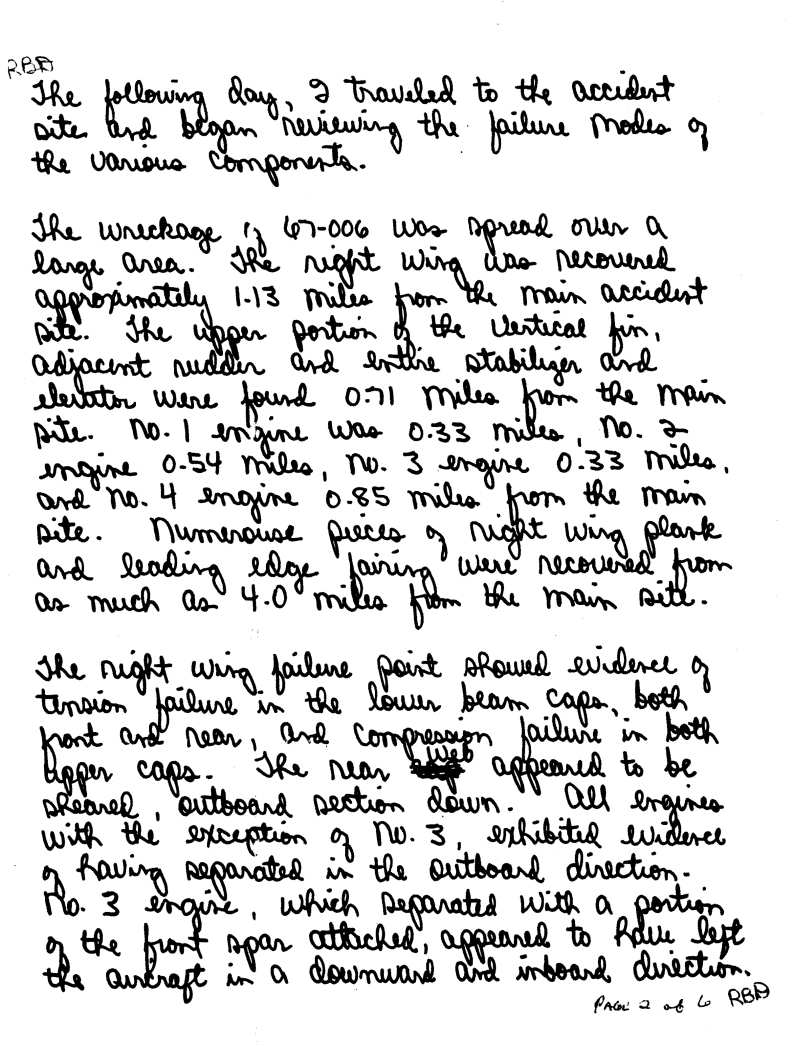 RBA
The following day, I traveled to the accident
site and began reviewing the failure modes of
the various components.
The wreckage of 67-006 was spread over a
large area. The right wing was recovered
approximately 1.13 miles from the main accident
site. The upper portion of the vertical fin,
adjacent rudder and entire stabilizer and
elevator were found 0.71 miles from the main
site. No. 1 engine was 0.33 miles, No. 2
engine 0.54 miles, No. 3 engine 0.33 miles,
and No. 4 engine 0.85 miles from the main
site. Numerouse pieces of right wing plank
and leading edge fairing were recovered from
as much as 4.0 miles from the main site.
The right wing failure point showed evidence of
tension failure in the lower beam caps, both
front and rear, and compression failure in both
upper caps. The rear web appeared to be
sheared, outboard section down. All engines
with the exception of No. 3, exhibited evidence
of having separated in the outboard direction.
No. 3 engine, which separated with a portion
of the front spar attached, appeared to have left
the aircraft in a downward and inboard direction.
PAGE 2 of 6 RBA